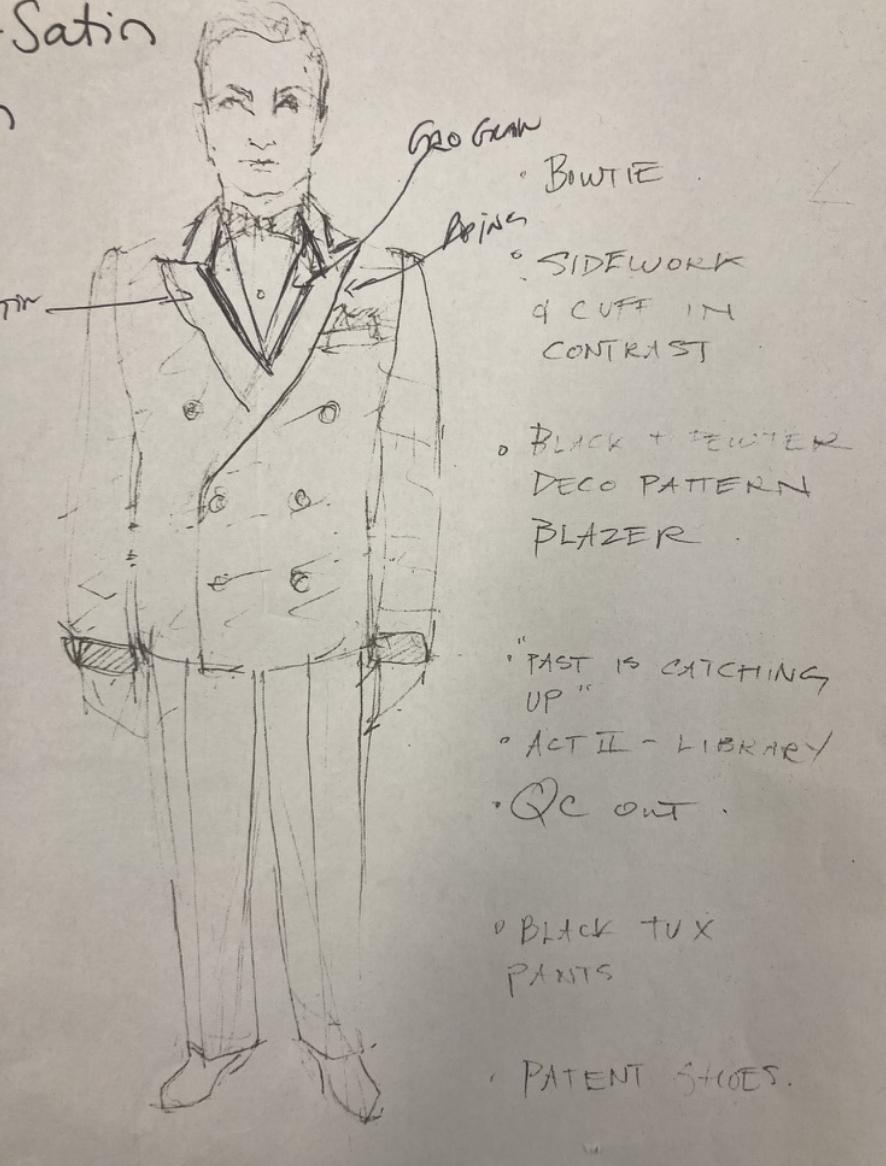 -Satin
GRO GRAIN
• BOWTIE
PIPING
• SIDEWORK
& CUFF IN
CONTRAST
• BLACK + PEWTER
DECO PATTERN
BLAZER
• "PAST IS CATCHING
UP"
• ACT II - LIBRARY
• QC OUT
• BLACK TUX
PANTS
• PATENT SHOES.